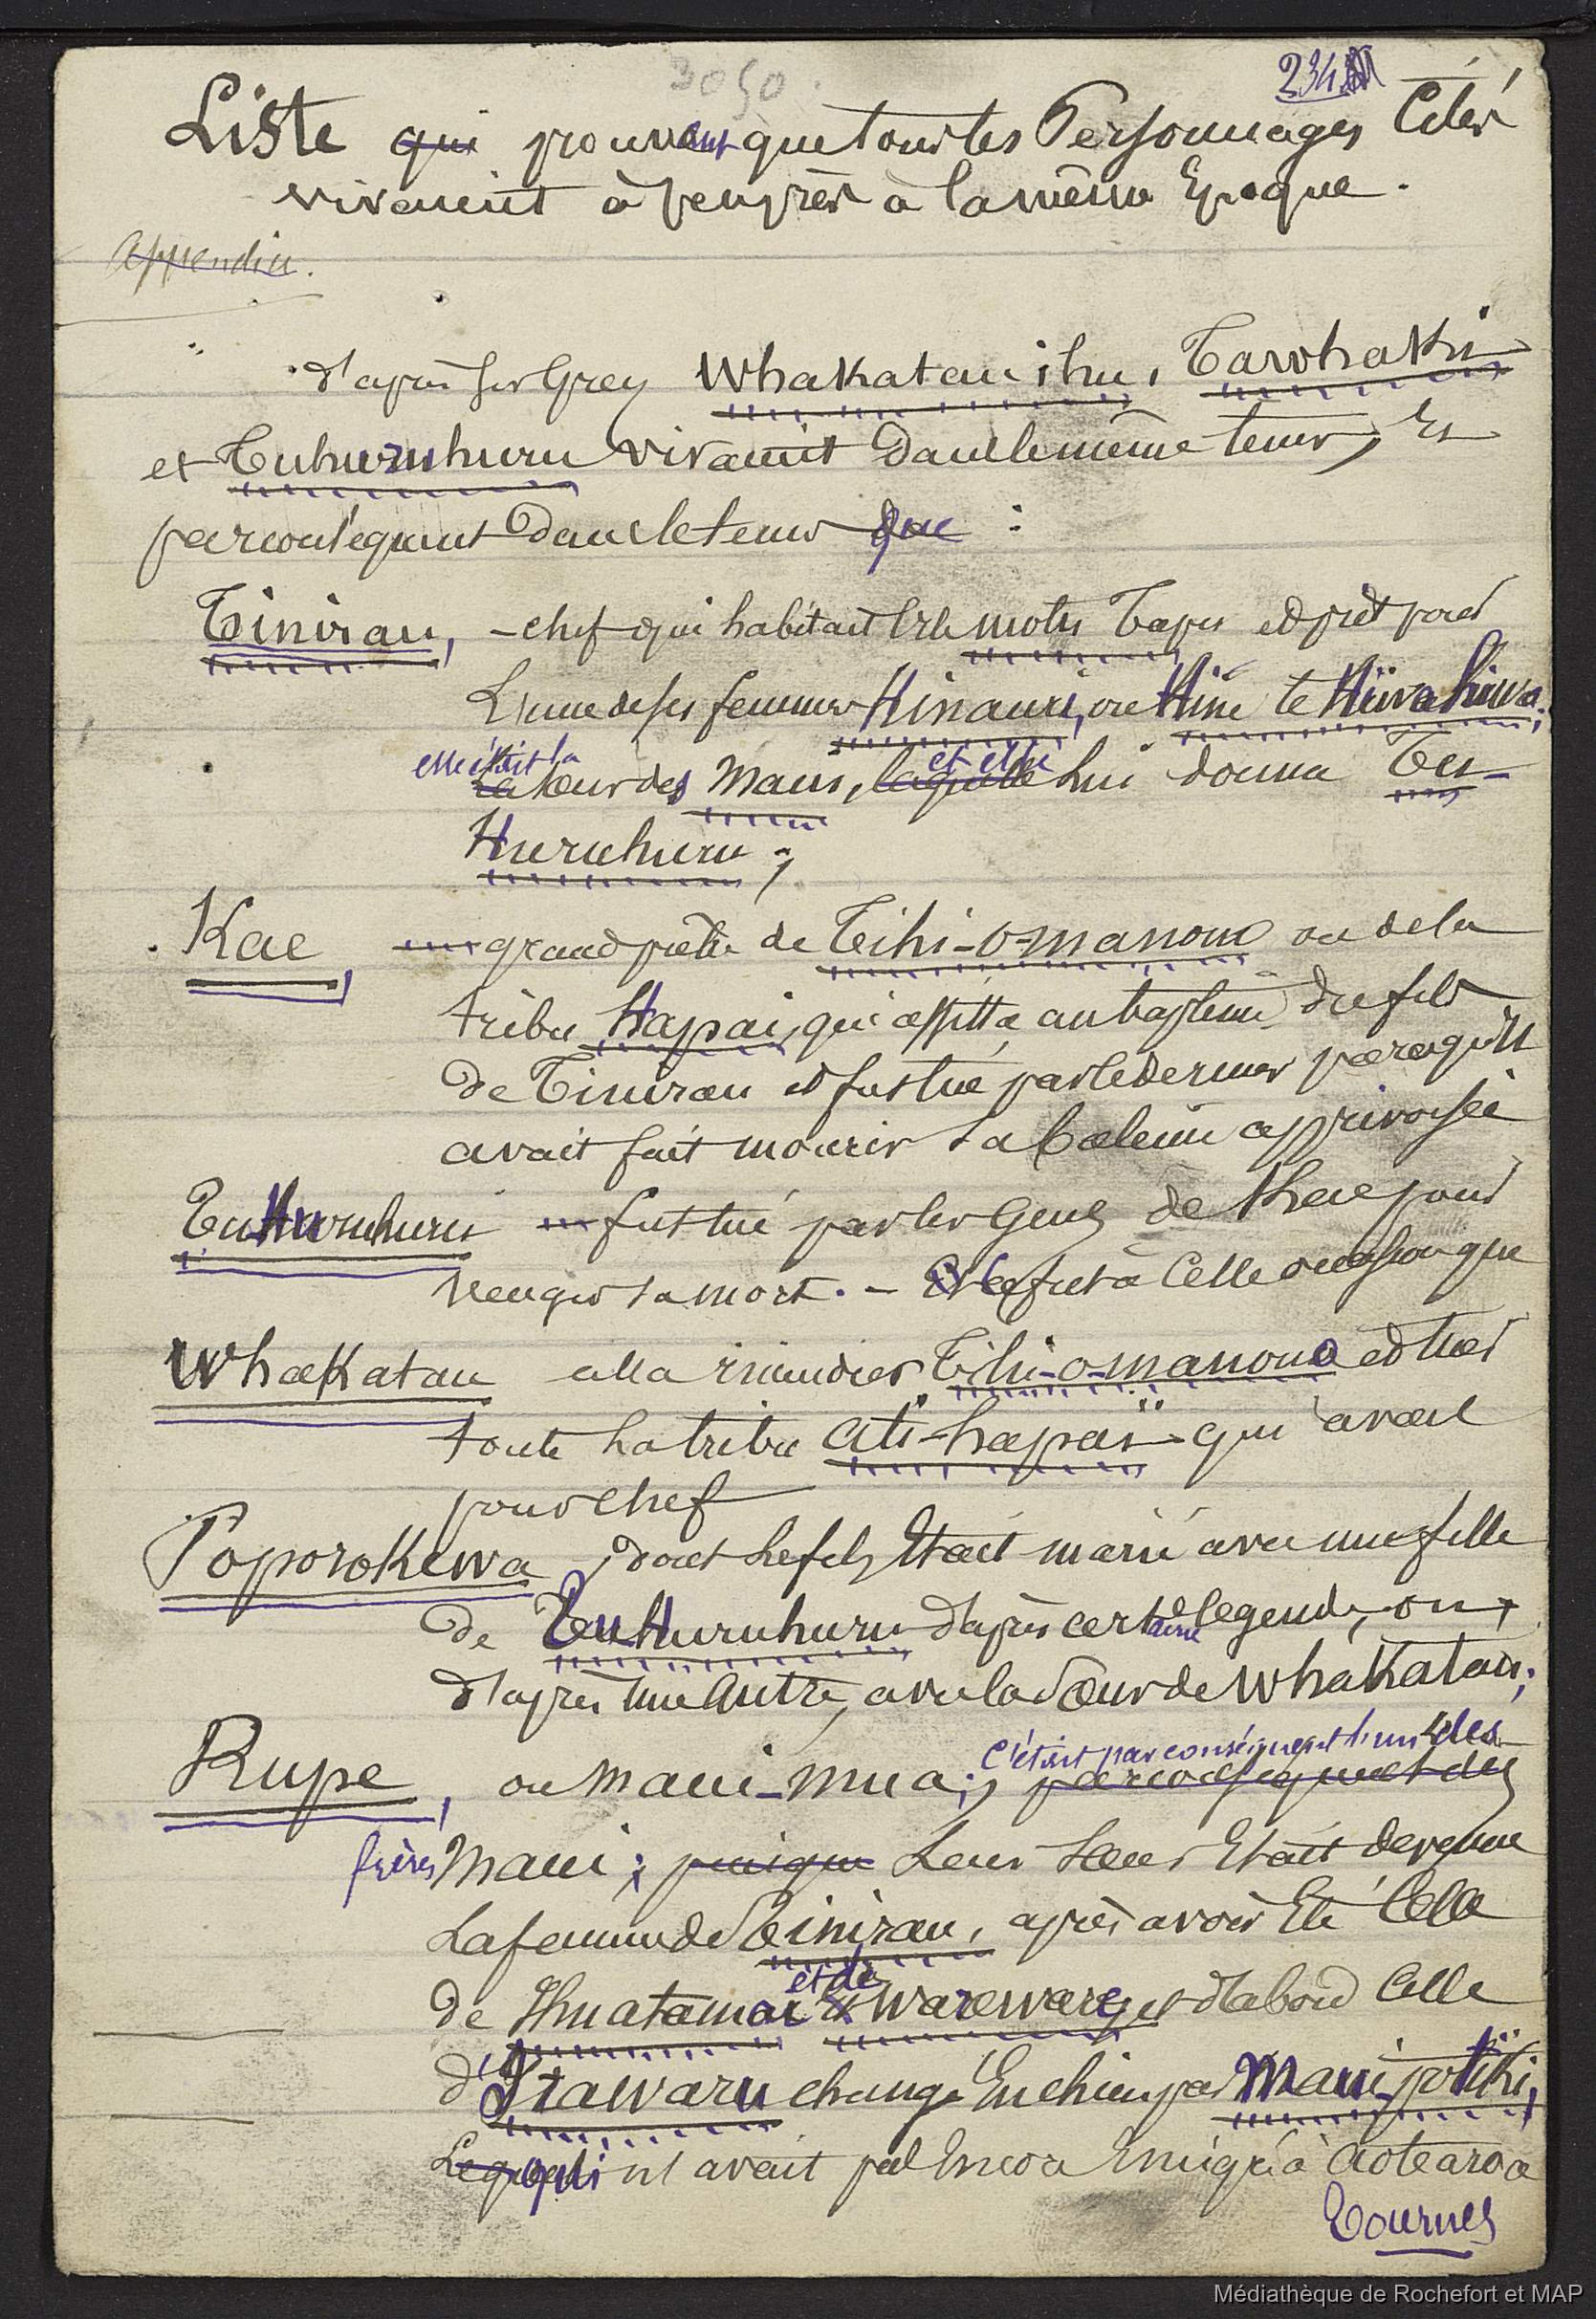 3050.
234
Liste qui prouvant que tous les Personnages Cités
vivaient à peu près à la même Epoque.
Appendice.
d'après Sir Grey Whakatau ihu, Tawhaki
et Tuhuruhuru vivaient dans le même tems, Et
par conséquent dans le tems que :
Tinirau, - chef qui habitait l'ile motu Tapu et prit pour
L'une de ses femmes Hinauri, ou Hine te Hiwahiwa;
elle était la
la soeur des Mauis, laquelle et elle lui donna Tu-
Huruhuru ;
Kae, grand prêtre de Tihi-o-manono ou de la
tribu Hapai, qui assista au baptême du fils
de Tinirau et fut tué par ce dernier parcequ'il
avait fait mourir sa baleine apprivoisée
Tu Huruhuru fut tué par les Gens de Kae pour
venger sa mort. - Ce fut à Cette occasion que
Whakatau alla incendier Tihi-o-manono et tuer
toute la tribu Ati-hapaï qui avait
pour chef
Poporokewa, dont le fils Etait marié avec une fille
de Tu-Huruhuru d'après certaine légende, ou,
d'après une autre, avec la Soeur de Whakatau;
Rupe, ou Maui-mua; c'était par conséquent l'un des
par conséquent des
frères Maui; puisque Leur Soeur Etait devenue
La femme de Tinirau, après avoir Eté Celle
de Ihuatamai et de Warewarege et d'abord Celle
d'Irawaru changé En chien par Maui potiki,
Lequel qui n'avait pas Encore Emigré à Aotearoa
Tournez
Médiathèque de Rochefort et MAP